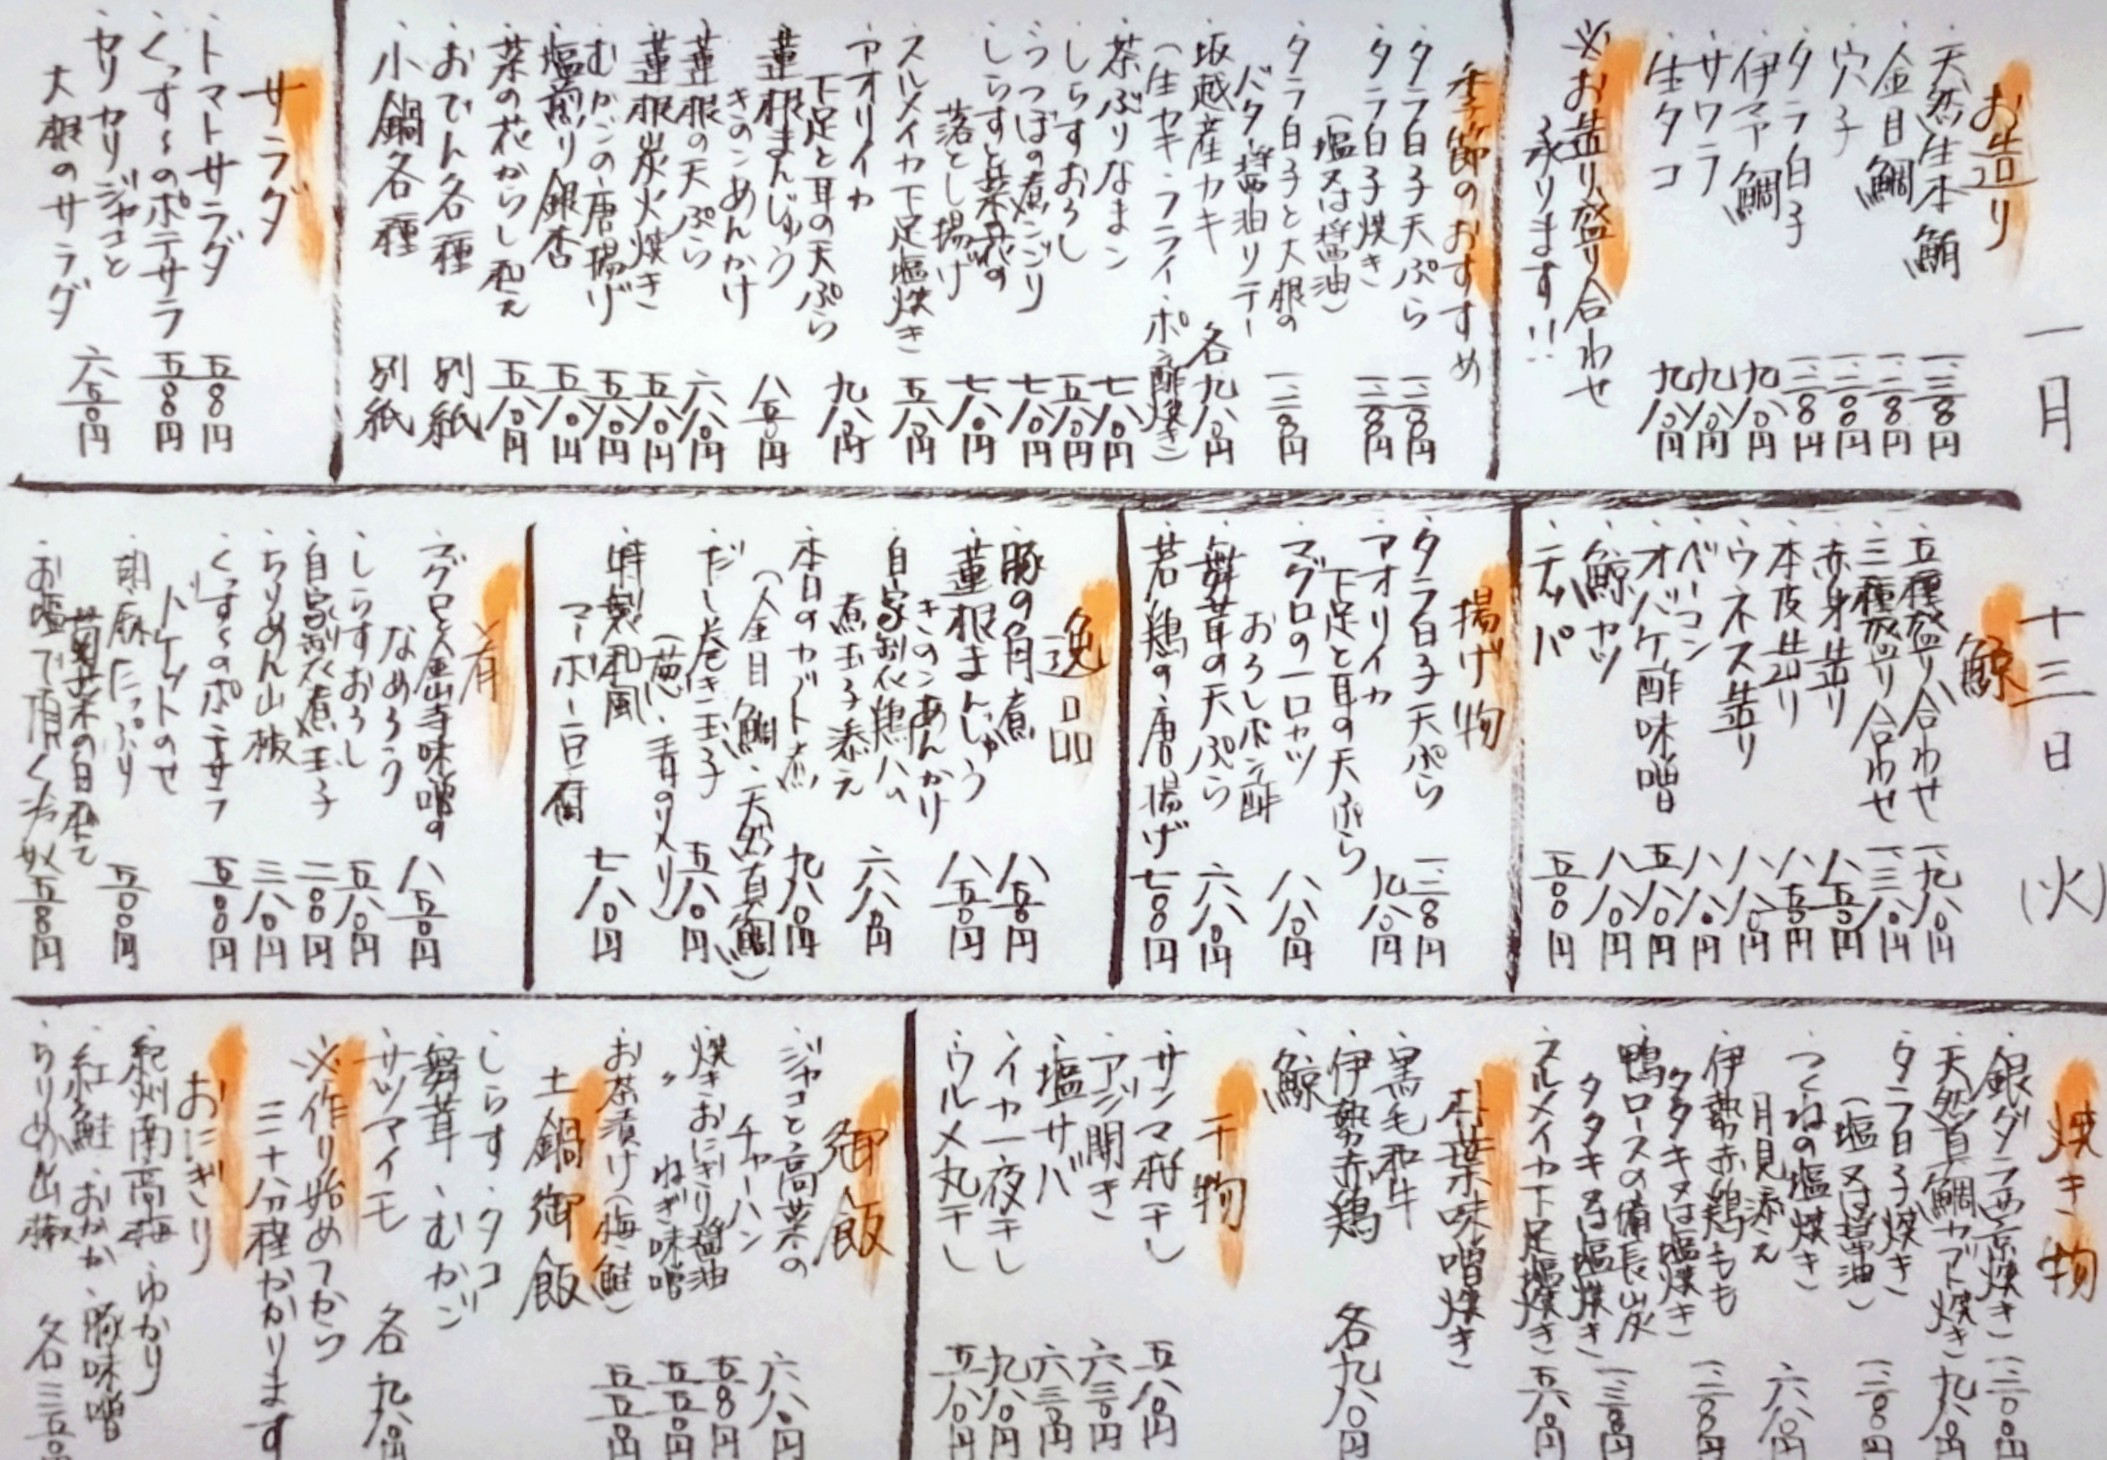 一月 十三日 (火)
お造り
・天然生本鮪
・金目鯛
・穴子
・タラ白子
・伊予鯛 九八〇円
・サワラ 九八〇円
・生タコ 九八〇円
※お造り盛り合わせ
承ります!!
季節のおすすめ
・タラ白子天ぷら
・タラ白子焼き
(塩又は醤油)
・タラ白子と大根の
バター醤油ソテー
・坂越産カキ 各九八〇円
(生カキ・フライ・ポン酢焼き)
・茶ぶりなまこ 七八〇円
・しらすおろし 五八〇円
・うつぼの煮こごり 七八〇円
・しらすと菜花の
落とし揚げ 七八〇円
・スルメイカ下足塩焼き 五八〇円
・アオリイカ
下足と耳の天ぷら 九八〇円
・蓮根まんじゅう
きのこあんかけ 八五〇円
・蓮根の天ぷら 六八〇円
・蓮根炭火焼き 五八〇円
・むかごの唐揚げ 五八〇円
・塩煎り銀杏 五八〇円
・菜の花からし和え 五八〇円
・おでん各種 別紙
・小鍋各種 別紙
サラダ
・トマトサラダ 五八〇円
・くっすんのポテサラ 五〇〇円
・カリカリジャコと
大根のサラダ 六五〇円
鯨
・五種盛り合わせ 一、九八〇円
・三種盛り合わせ 一、三八〇円
・赤身造り 八五〇円
・本皮造り 八五〇円
・ウネス造り 八八〇円
・ベーコン 八八〇円
・オバケ酢味噌 五八〇円
・鯨カツ 八八〇円
・テッパ 五〇〇円
揚げ物
・タラ白子天ぷら
・アオリイカ
下足と耳の天ぷら 九八〇円
・マグロの一口カツ
おろしポン酢 八八〇円
・舞茸の天ぷら 六八〇円
・若鶏の唐揚げ 七〇〇円
逸品
・豚の角煮 八五〇円
・蓮根まんじゅう
きのこあんかけ 八五〇円
・自家製鶏ハム
煮玉子添え 六八〇円
・本日のカブト煮 九八〇円
(金目鯛・天然真鯛)
・だし巻き玉子 五八〇円
(葱・青のり入り)
・特製和風
マーボー豆腐 七八〇円
肴
・マグロと金山寺味噌の
なめろう 八五〇円
・しらすおろし 五八〇円
・自家製煮玉子 二〇〇円
・ちりめん山椒 三八〇円
・くっすんのポテサラ 五〇〇円
バゲットのせ
・胡麻たっぷり
菊菜の白和え 五〇〇円
・お塩で頂く冷奴 五〇〇円
焼き物
・銀ダラ西京焼き
・天然真鯛カブト焼き 九八〇円
・タラ白子焼き
(塩又は醤油)
・つくねの塩焼き
月見添え 六八〇円
・伊勢赤鶏もも
タタキ又は塩焼き
・鴨ロースの備長炭
タタキ又は塩焼き
・スルメイカ下足塩焼き 五八〇円
朴葉味噌焼き
・黒毛和牛
・伊勢赤鶏 各九八〇円
・鯨
干物
・サンマ丸干し 五八〇円
・アジ開き 六三〇円
・塩サバ 六三〇円
・イカ一夜干し 九八〇円
・ウルメ丸干し 五八〇円
御飯
・ジャコと高菜の
チャーハン 六八〇円
・焼きおにぎり醤油
・〃 ねぎ味噌 五五〇円
・お茶漬け(梅・鮭) 五五〇円
土鍋御飯
・しらす・タコ
・舞茸・むかご
・サツマイモ 各九八〇円
※作り始めてから
三十分程かかります
おにぎり
・紀州南高梅・ゆかり
・紅鮭・おかか・豚味噌
・ちりめん山椒 各三五〇